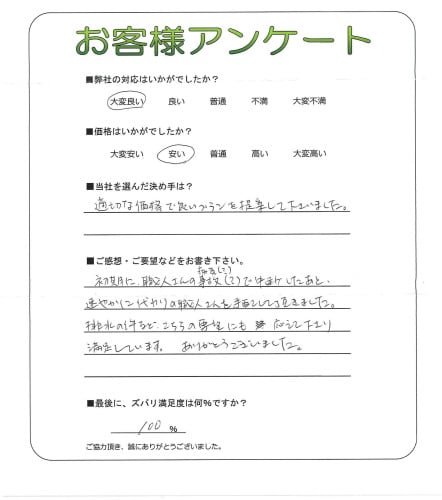 お客様アンケート
■弊社の対応はいかがでしたか?
大変良い 良い 普通 不満 大変不満
■価格はいかがでしたか?
大変安い 安い 普通 高い 大変高い
■当社を選んだ決め手は?
適切な価格で良いプランを提案して下さいました。
■ご感想・ご要望などをお書き下さい。
初期に、職人さんの事故(?)で中断したあと、
速やかに代わりの職人さんを手配して頂きました。
排水の件など、こちらの要望にも 応えて下さり
満足しています。 ありがとうございました。
■最後に、ズバリ満足度は何%ですか?
100 %
ご協力頂き、誠にありがとうございました。